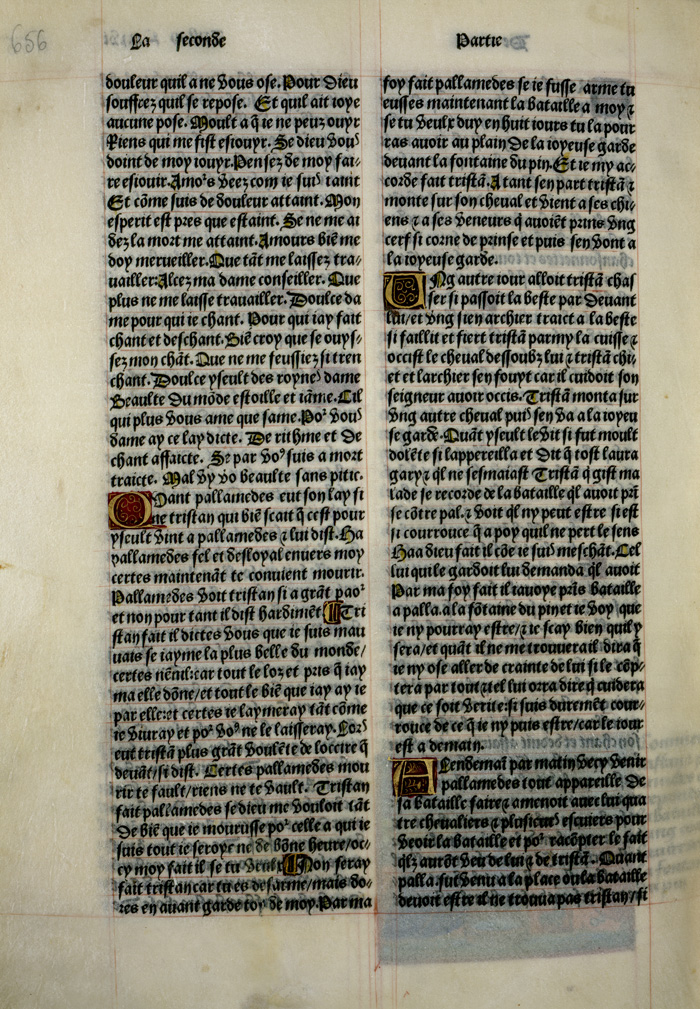 656
La seconde
Partie
douleur quil a ne vous ose. Pour dieu
souffrez quil se repose. Et quil ait ioye
aucune pose. Moult a q̃ ie ne peuz ouyr
Riens qui me fist esiouyr. Se dieu voꝰ
doint de moy iouyr. Pensez de moy fai⸗
re esiouir. Amoꝛs veez com ie suiꝰ taint
Et cõme suis de douleur attaint. Mon
esperit est pres que estaint. Se ne me ai
dez la mort me attaint. Amours biẽ me
doy merueiller. Que tãt me laissez tra⸗
uailler. Alez ma dame conseiller. Que
plus ne me laisse trauailler. Doulce da
me pour qui ie chant. Pour qui iay fait
chant et deschant. Biẽ croy que se ouys⸗
sez mon chãt. Que ne me feussiez si tren
chant. Doulce yseult des royneꝰ dame
Beaulte du mõde estoille et iãme. Cil
qui plus vous ame que same. Poꝛ voꝰ
dame ay ce lay dicte. De rithme et de
chant affaicte. Se par voꝰ suis a mort
traicte. Mal vy vo beaulte sans pitie.
Quant pallamedes eut son lay fi
ne tristan qui biẽ scait q̃ cest pour
yseult vint a pallamedes ⁊ lui dist. Ha
pallamedes fel et desloyal enuers moy
certes maintenãt te conuient mourir.
Pallamedes voit tristan si a grãt paoꝛ
et non pour tant il dist hardimẽt Tri
stan fait il dictes vous que ie suis mau
uais se iayme la plus belle du monde/
certes nẽnil: car tout le loz et pris q̃ iay
ma elle dõne/et tout le biẽ que iay ay ie
par elle: et certes ie laymeray tãt cõme
ie viuray et poꝛ voꝰ ne le laisseray. Lorꝰ
eut tristã plus grãt voulẽte de loccire q̃
deuãt/si dist. Certes pallamedes mou
rir te fault/riens ne te vault. Tristan
fait pallamedes se dieu me vouloit tãt
de biẽ que ie mourusse poꝛ celle a qui ie
suis tout ie seroye ne de bõne heure/oc⸗
cy moy fait il se tu veulx Non feray
fait tristan car tu es desarme/mais do⸗
res en auant garde toy de moy. Par ma
foy fait pallamedes se ie fusse arme tu
eusses maintenant la bataille a moy ⁊
se tu veulx duy en huit iours tu la pour
ras auoir au plain de la ioyeuse garde
deuant la fontaine du pin. Et ie my ac⸗
corde fait tristã. A tant sen part tristã ⁊
monte sur son cheual et vient a ses chi⸗
ens ⁊ a ses veneurs q̃ auoiẽt prins vng
cerf si corne de prinse et puis sen vont a
la ioyeuse garde.
Ung autre iour alloit tristã chas
ser si passoit la beste par deuant
lui/et vng sien archier traict a la beste
si faillit et fiert tristã parmy la cuisse ⁊
occist le cheual dessoubz lui ⁊ tristã chi⸗
et et larchier sen fouyt car il cuidoit son
seigneur auoir occis. Tristã monta sur
vng autre cheual puiꝰ sen va a la ioyeu
se garde. Quãt yseult le vit si fut moult
dolẽte si lappereilla et dit q̃ tost laura
gary ⁊ q̃l ne sesmaiast Tristã q̃ gist ma
lade se recorde de la bataille q̃l auoit pñ
se cõtre pal. ⁊ voit q̃l ny peut estre si est
si courrouce q̃ a poy quil ne pert le sens
Haa dieu fait il cõe ie suiꝰ meschãt. Cel
lui qui le gardoit lui demanda q̃l auoit
Par ma foy fait il iauoye prĩs bataille
a palla. a la fõtaine du pin et ie voy que
ie ny pourray estre/⁊ ie scay bien quil y
sera/et quãt il ne me trouuera il dira q̃
ie ny ose aller de crainte de lui si le cõp⸗
tera par tout ⁊ tel lui orra dire q̃ cuidera
que ce soit verite: si suis duremẽt cour⸗
rouce de ce q̃ ie ny puis estre/car le iour
est a demain.
Lendemaĩ par matin vecy venir
pallamedes tout appareille de
sa bataille faire ⁊ amenoit auec lui qua
tre cheualiers ⁊ plusieurꝰ escuiers pour
veoir la bataille et poꝛ racõpter le fait
q̃lz aurõt veu de lui ⁊ de tristã. Quant
palla. fut venu a la place ou la bataille
deuoit estre il ne trouua pas tristan/si